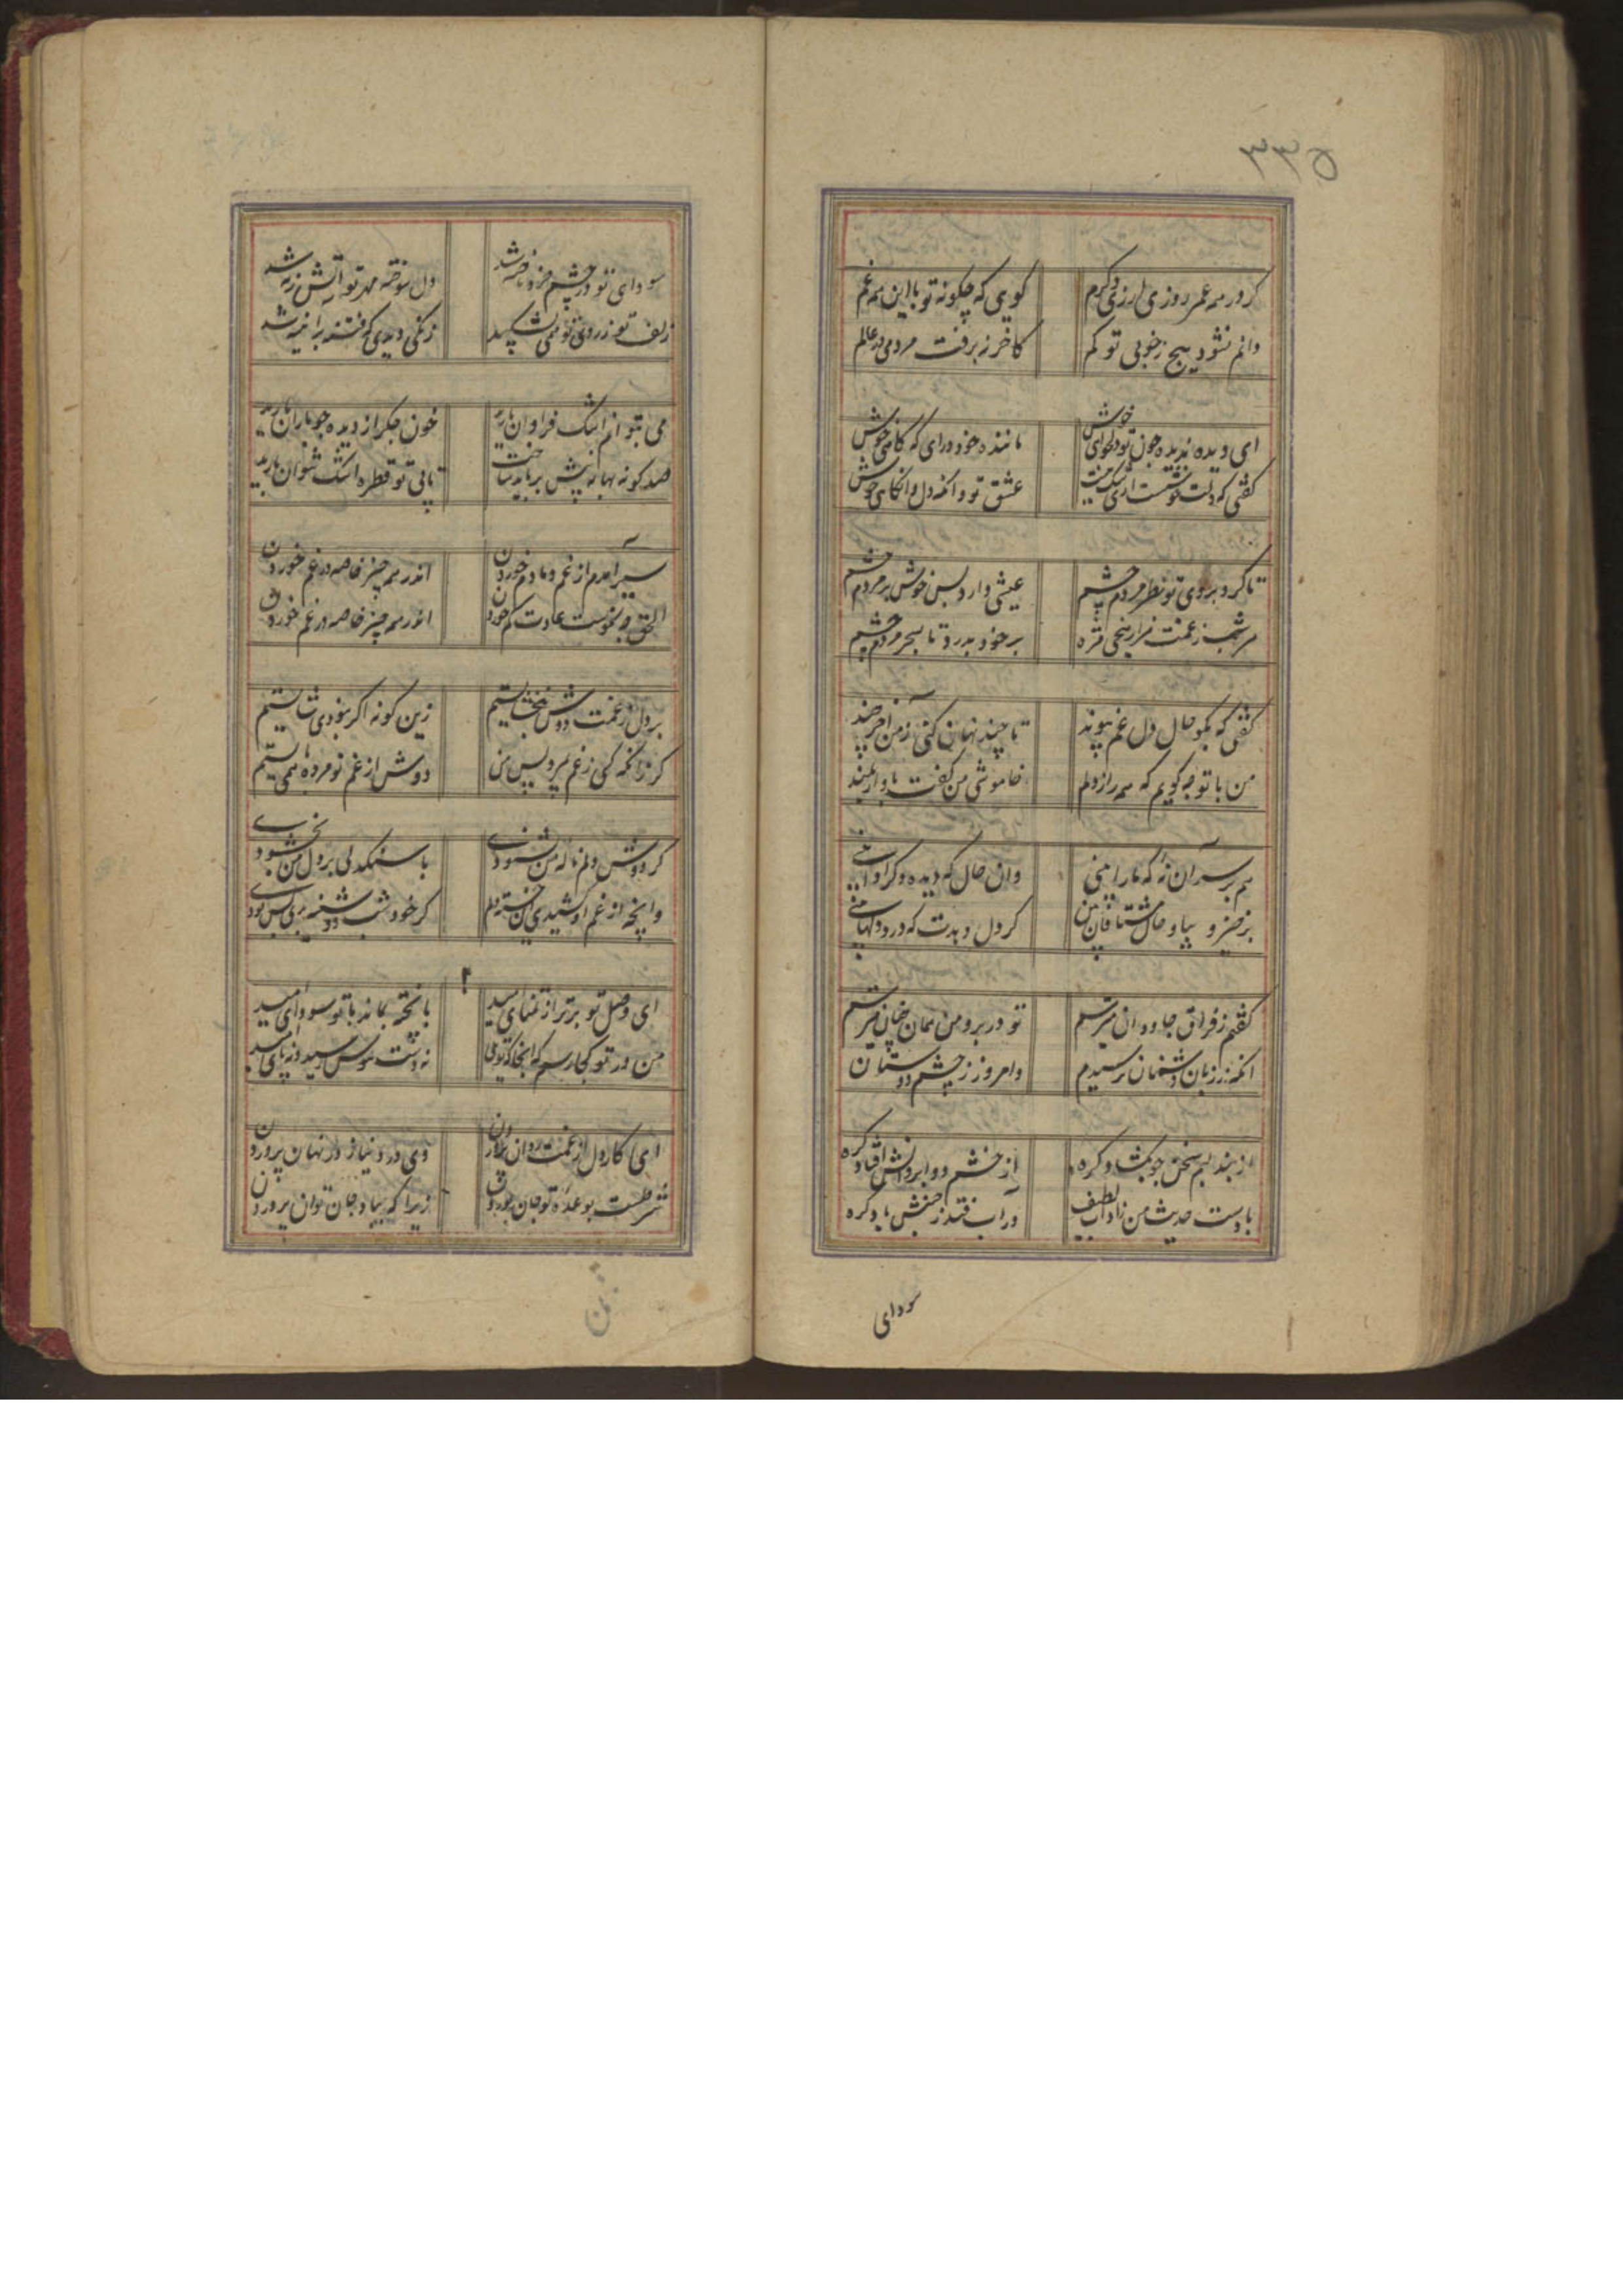 ۳۳۵
کر در همه عمر روزی ارزی و کرم
کویی که چکونه تو با این همه غم
دانم نشود هیچ زخوبی تو کم
کاخر نه برفت مردمی در عالم
ای دیده ندیده چون تو دلخوای خوش
ماننده خود درای که کامی خوش
کفتی که دلت خوشست
عشق تو و انکه دل و انکای خوش
تا کرد بروی تو نظر مردم چشم
عیشی دارد بس خوش بر مردم چشم
هر شب زغمت هزار
بر خود بدرد تا بسحر مردم چشم
کفتی که بکو حال دل غم پیوند
تا چند نهان کنی زمن آخر چند
من با تو چه کویم که همه راز دلم
خاموشی من کفت باواز بلند
هم بر سر آن نه که ما را بینی
وان حال که دیده دکر
برخیز و بیا و حال مشتاقان بین
کر دل دهدت که درد دلها بینی
کفتم زفراق جاودان میترسم
تو در بر و من همان چنان میترسم
انکه ز زبان دشمنان ترسیدم
و امروز ز چشم دوستان
از بند لبم سخن چو بکشاد کره
از خشم دو ابروانش افتاد کره
بادست حدیث من زاد آب لطیف
در آب فتد ز جنبش باد کره
سودای
سودای تو در چشم خرد ناخنه شد
دل سوخته مهر تو آتش زنه شد
زلف تو ز روی تو همی نشکیبد
زنکی دیدی که فتنه بر آینه شد
می نتوانم اشک فراوان بارید
خون جکر از دیده چو باران بارید
صد کونه بهانه پیش بر باید ساخت
تا بی تو قطره اشک نتوان بارید
سیر آمدم از غم دمادم خوردن
اندر همه چیز خاصه در غم خوردن
الحق چه نکوست عادت کم خوردن
اندر همه چیز خاصه در غم خوردن
بر دل زغمت دوش
زین کونه اکر نبودی شایستیم
کر زانکه کسی زغم بمردی پس من
دوش از غم تو مرده همی بایستم
کر دوش دلم ناله من نشنودی
با سنکدلی بر دل من بخشودی
وانچه از غم او کشید این خسته دلم
کر خود شب دوشینه بدی بس بودی
ای وصل تو برتر از تمنای امید
ناپخته بماند با تو سودای امید
من در تو کجا رسم که آنجا که تویی
نه دست هوس رسید و نه پای امید
ای کار دل از غمت روان پروردن
وی درد و نیاز در نهان پروردن
شرطست بوعده تو جان پروردن
زیرا که بیاد جان توان پروردن